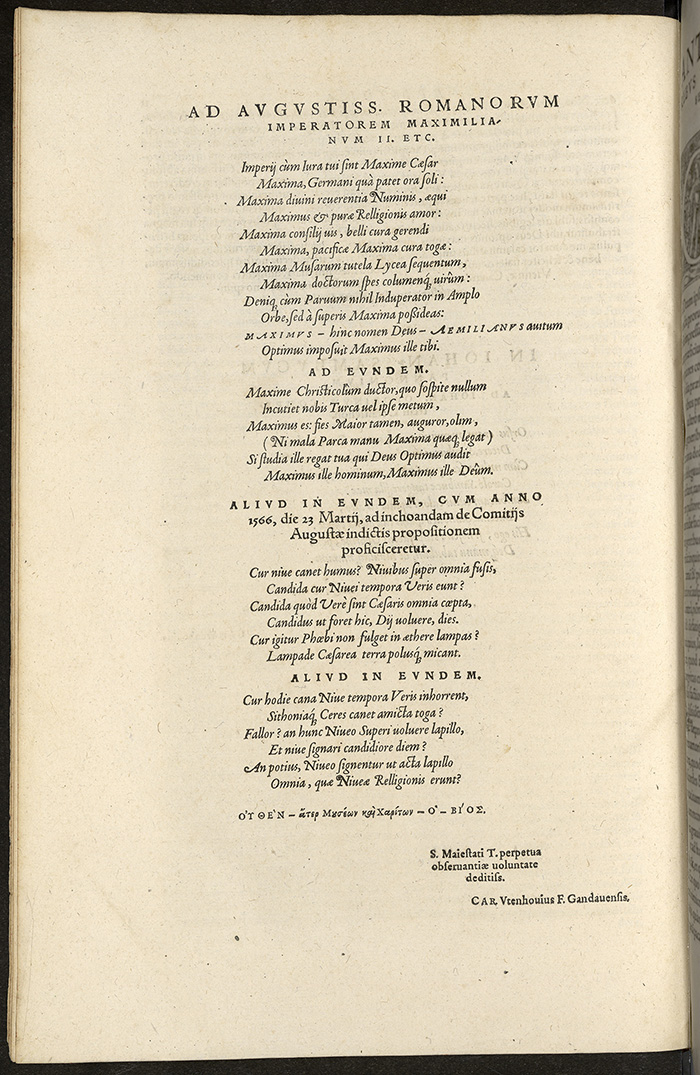 AD AVGVSTISS. ROMANORVM
IMPERATOREM MAXIMILIA-
NVM II. ETC.
Imperij cùm Iura tui sint Maxime Cæsar
Maxima, Germani quà patet ora soli:
Maxima diuini reuerentia Numinis, æqui
Maximus & puræ Relligionis amor:
Maxima consilij uis, belli cura gerendi
Maxima, pacificæ Maxima cura togæ:
Maxima Musarum tutela Lycea sequentum,
Maxima doctorum spes columenq́; uirûm:
Deniq; cùm Paruum nihil Induperator in Amplo
Orbe, sed à superis Maxima poßideas:
MAXIMVS – hinc nomen Deus – AEMILIANVS auitum
Optimus imposuit Maximus ille tibi.
AD EVNDEM.
Maxime Christicolûm ductor, quo sospite nullum
Incutiet nobis Turca uel ipse metum,
Maximus es: fies Maior tamen, auguror, olim,
(Ni mala Parca manu Maxima quæq; legat)
Si studia ille regat tua qui Deus Optimus audit
Maximus ille hominum, Maximus ille Deûm.
ALIVD IN EVNDEM, CVM ANNO
1566, die 23 Martij, ad inchoandam de Comitijs
Augustæ indictis propositionem
proficisceretur.
Cur niue canet humus? Niuibus super omnia fusis,
Candida cur Niuei tempora Veris eunt?
Candida quòd Verè sint Cæsaris omnia cœpta,
Candidus ut foret hic, Dij uoluere, dies.
Cur igitur Phœbi non fulget in æthere lampas?
Lampade Cæsarea terra polusq́; micant.
ALIVD IN EVNDEM.
Cur hodie cana Niue tempora Veris inhorrent,
Sithoniaq́; Ceres canet amicta toga?
Fallor? an hunc Niueo Superi uoluere lapillo,
Et niue signari candidiore diem?
An potius, Niueo signentur ut acta lapillo
Omnia, quæ Niueæ Relligionis erunt?
ΟΥ̓ΘΕ`Ν – ἄτερ Μυσέων καὶ Χαρίτων – Ὁ – ΒΙ´ΟΣ.
S. Maiestati T. perpetua
obseruantiæ uoluntate
deditiss.
CAR. Vtenhouius F. Gandauensis.